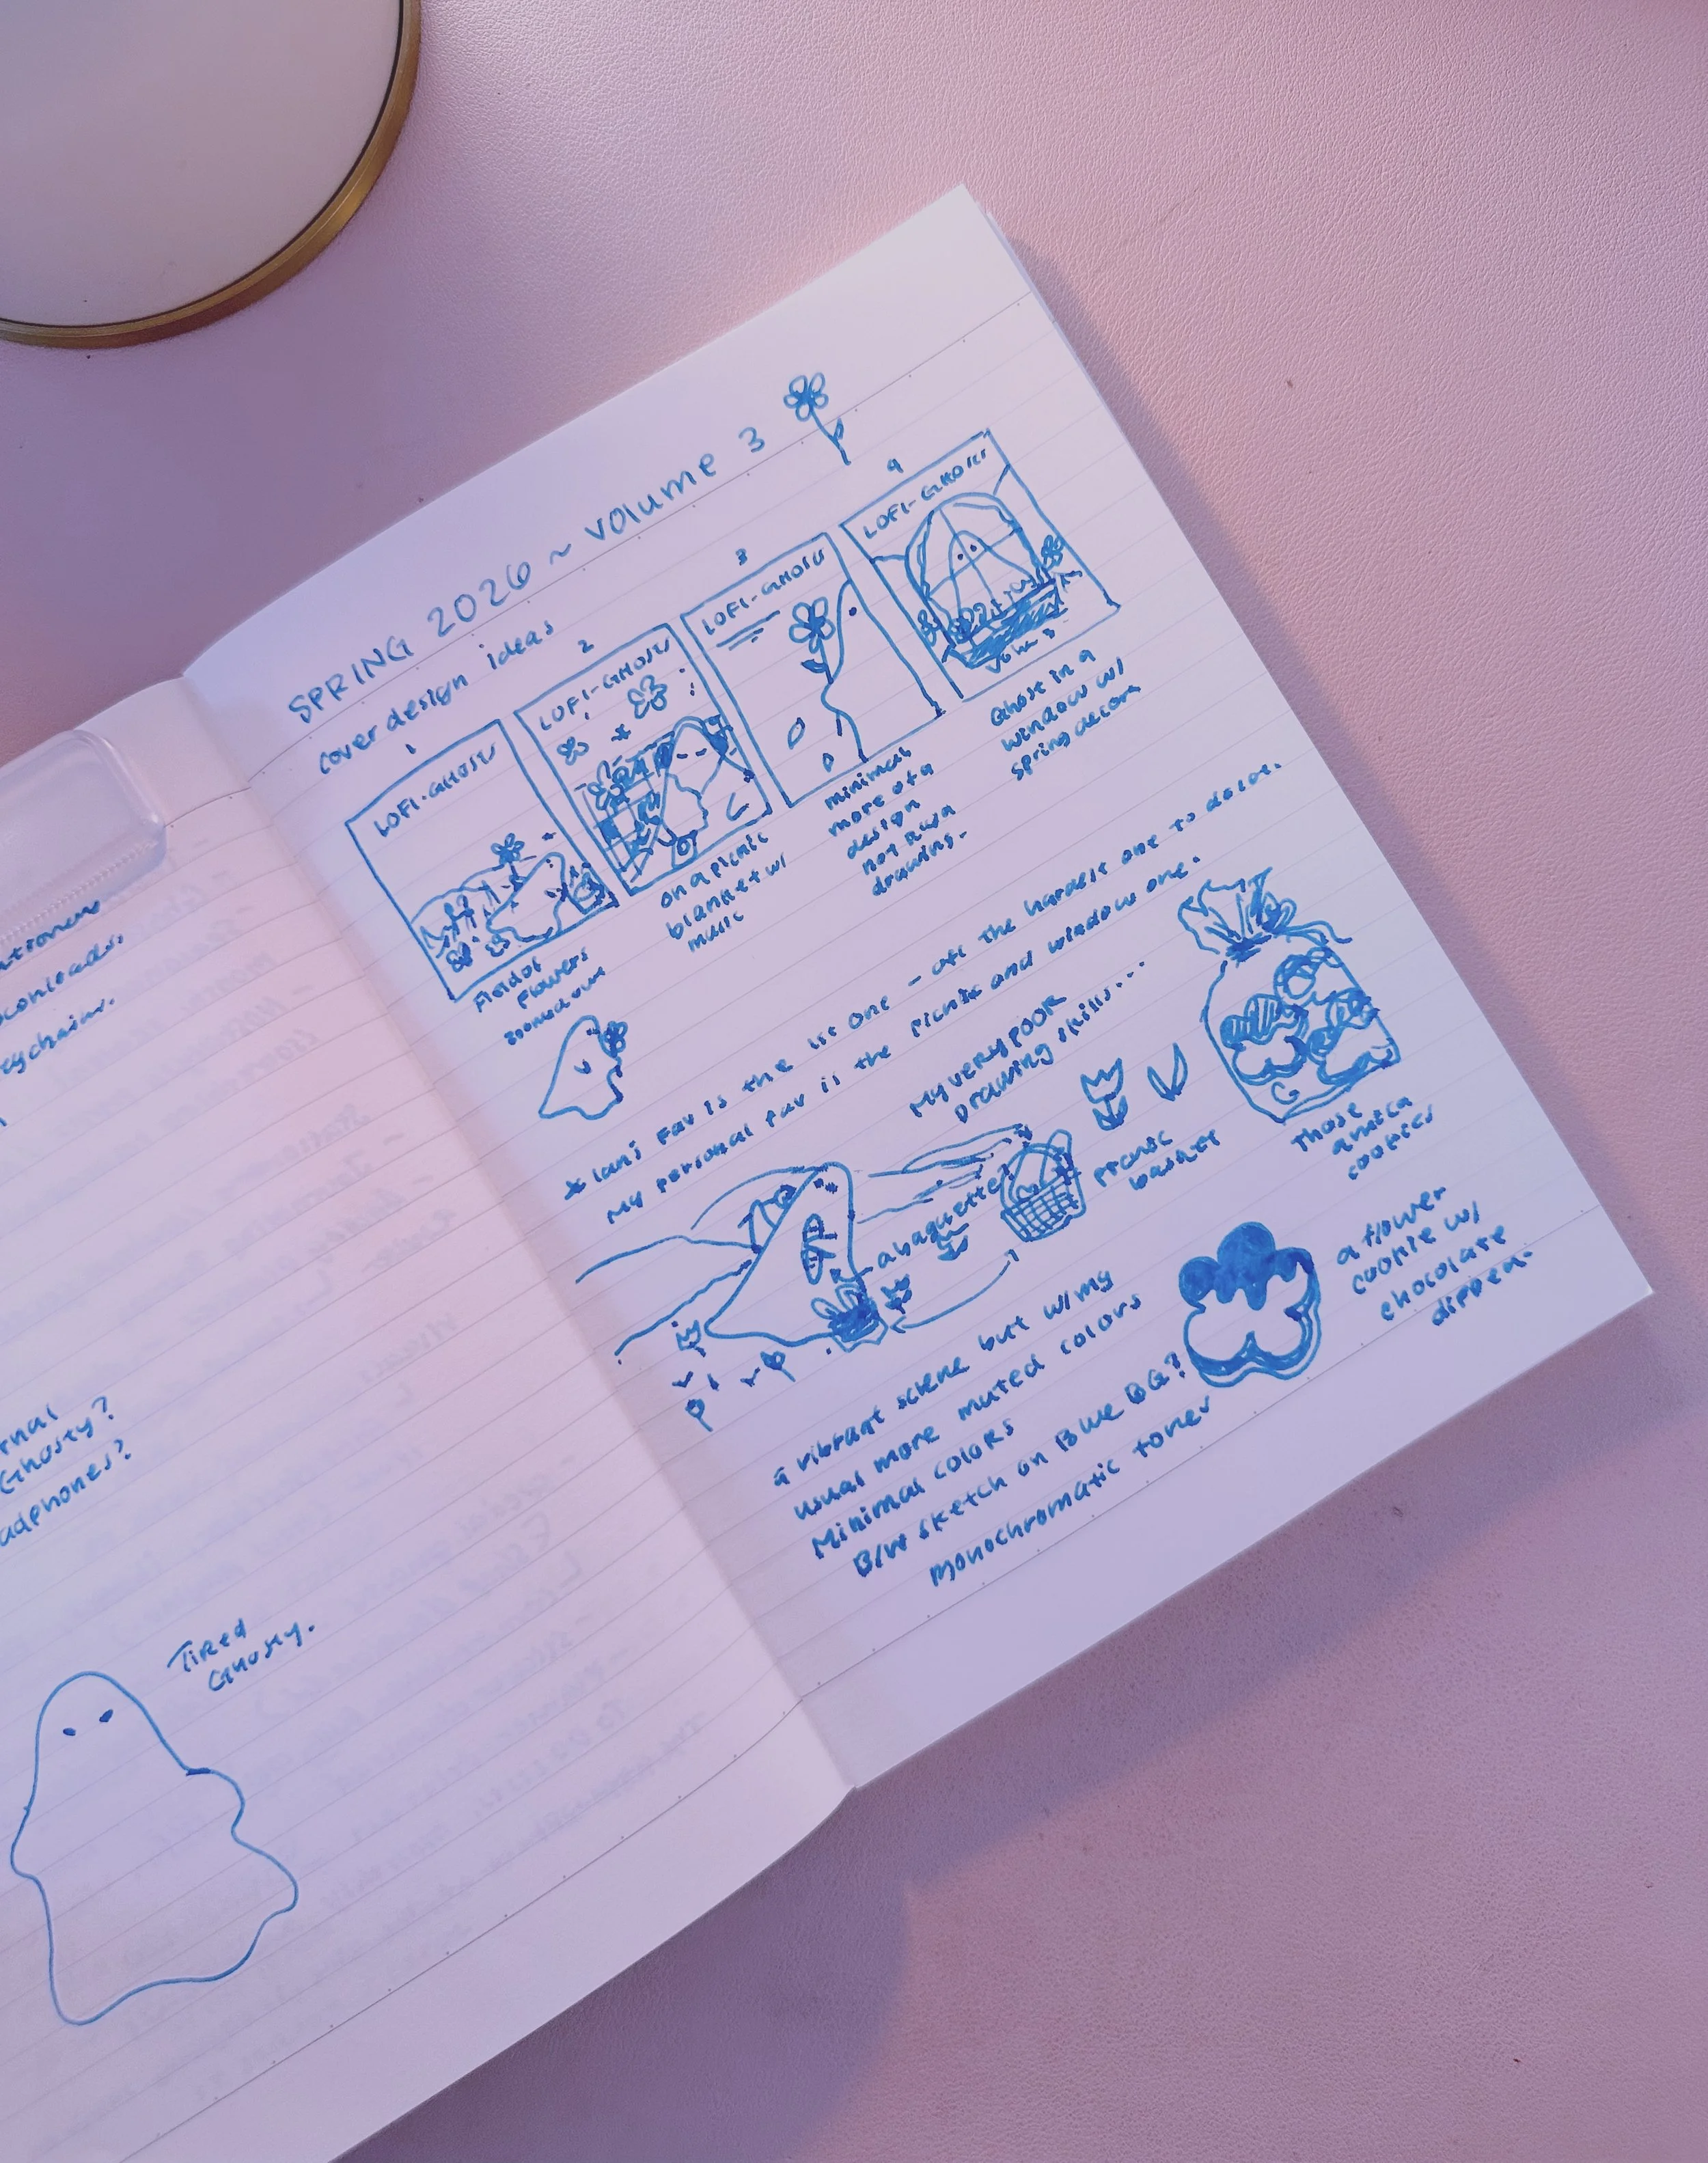 conloads.
eychain.
rnal
Ghosty?
adphones?
Tired
Ghosty.
SPRING 2026 ~ volume 3
cover design ideas
1
LOFI-GHOSTY
Field of
flowers
2
LOFI-GHOSTY
on a picnic
blanket w/
music
3
LOFI-GHOSTY
minimal
more of a
design
not a
drawing.
4
LOFI-GHOSTY
Vol. 3
Ghost in a
window w/
spring decor
* fav is the 1st one - the hardest one to do
My personal fav is the picnic and window one.
My very poor
drawing skills...
a baguette
picnic
basket
G
Those
cookies
a flower
cookie w/
chocolate
dipped.
a vibrant scene but w/ my
usual more muted colors
Minimal colors
B/W sketch on BLUE BG?
monochromatic tones